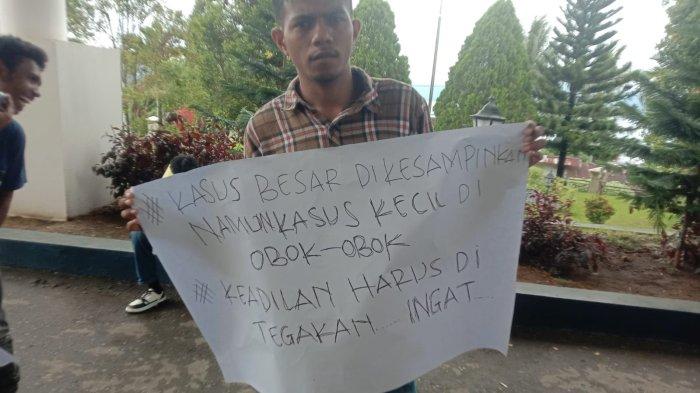 ### KASUS BESAR DIKESAMPINKAN
NAMUN KASUS KECIL DI
OBOK-OBOK
### KEADILAN HARUS DI
TEGAKAN..... INGAT....